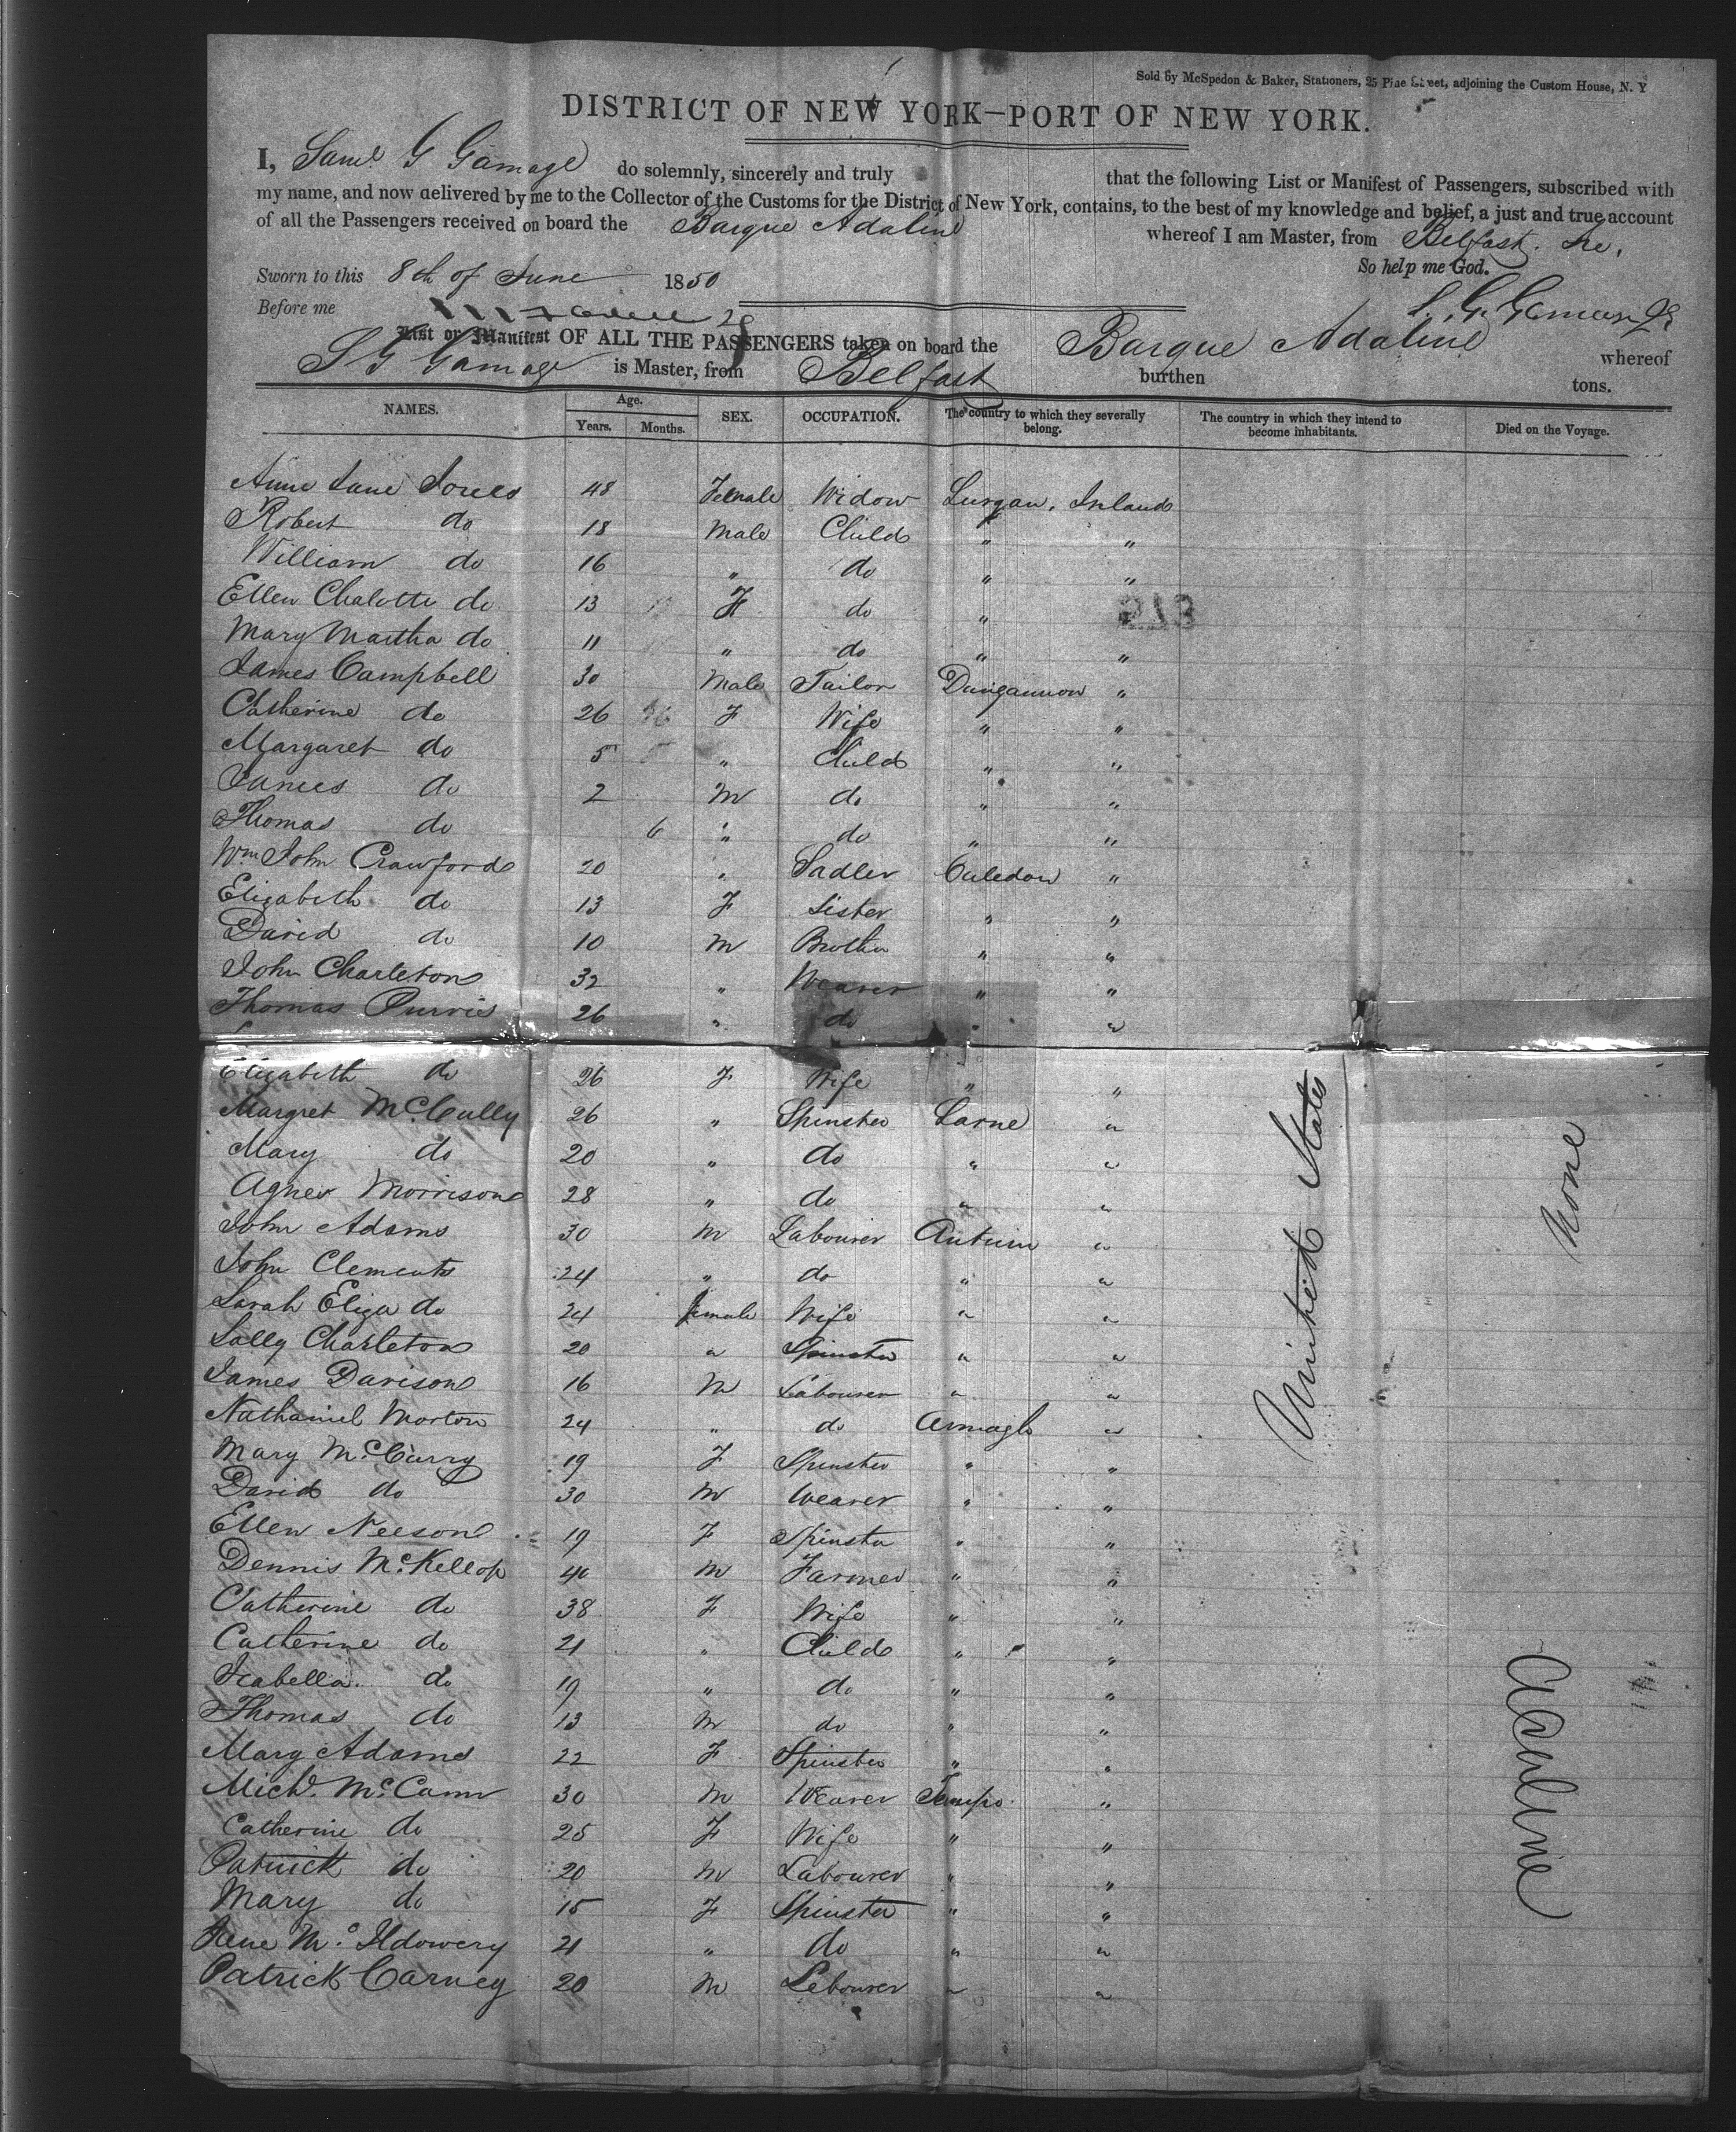 Sold by McSpedon & Baker, Stationers, 25 Pine Street, adjoining the Custom House, N. Y
DISTRICT OF NEW YORK—PORT OF NEW YORK.
I, Saml G Gamage do solemnly, sincerely and truly that the following List or Manifest of Passengers, subscribed with
my name, and now delivered by me to the Collector of the Customs for the District of New York, contains, to the best of my knowledge and belief, a just and true account
of all the Passengers received on board the Barque Adaline whereof I am Master, from Belfast. Ire.
So help me God.
Sworn to this 8th of June 1850
Before me
List or Manifest OF ALL THE PASSENGERS taken on board the Barque Adaline whereof
S G Gamage is Master, from Belfast burthen tons.
NAMES. Age. Years. Months. SEX. OCCUPATION. The country to which they severally belong. The country in which they intend to become inhabitants. Died on the Voyage.
Anne Jane Jones 48 Female Widow Lurgan. Ireland
Robert do 18 Male Child " "
William do 16 " do " "
Ellen Chalotte do 13 F do "
Mary Martha do 11 " do " "
James Campbell 30 Male Tailor Dungannon "
Catherine do 26 F Wife " "
Margaret do 5 " Child " "
James do 2 M do " "
Thomas do 6 " do " "
Wm John Crawford 20 " Sadler Caledon "
Elizabeth do 13 F Sister " "
David do 10 M Brother " "
John Charleton 32 " Weaver " "
Thomas Purvis 26 " do " "
Elizabeth do 26 F Wife " "
Margret McCully 26 " Spinster Larne "
Mary do 20 " do " "
Agnes Morrison 28 " do " "
John Adams 30 M Labourer Antrim "
John Clements 24 " do " "
Sarah Eliza do 24 female Wife " "
Sally Charleton 20 " Spinster " "
James Davison 16 M Labourer " "
Nathaniel Morton 24 " do Armagh "
Mary McCurry 19 F Spinster " "
David do 30 M Weaver " "
Ellen Neeson 19 F Spinster " "
Dennis McKellop 40 M Farmer " "
Catherine do 38 F Wife " "
Catherine do 21 " Child " "
Isabella do 19 " do " "
Thomas do 13 M do " "
Mary Adams 22 F Spinster " "
Michl. McCann 30 M Weaver Tempo "
Catherine do 25 F Wife " "
Patrick do 20 M Labourer " "
Mary do 15 F Spinster " "
Jane McIldowery 21 " do " "
Patrick Carney 20 M Labourer " "
United States
None
Adaline